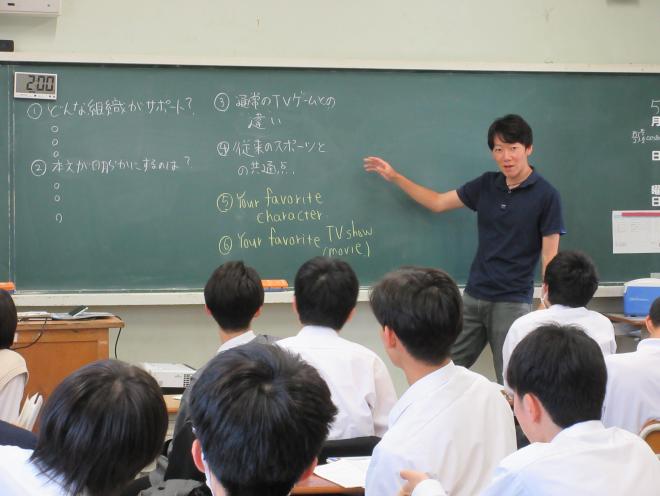 2:00
① どんな組織がサポート?
② 本文が明らかにするのは?
③ 通常のTVゲームとの
違い
④ 従来のスポーツと
の共通点.
⑤ Your favorite
character.
⑥ Your favorite TV show
(movie)
5
月
日
曜
日